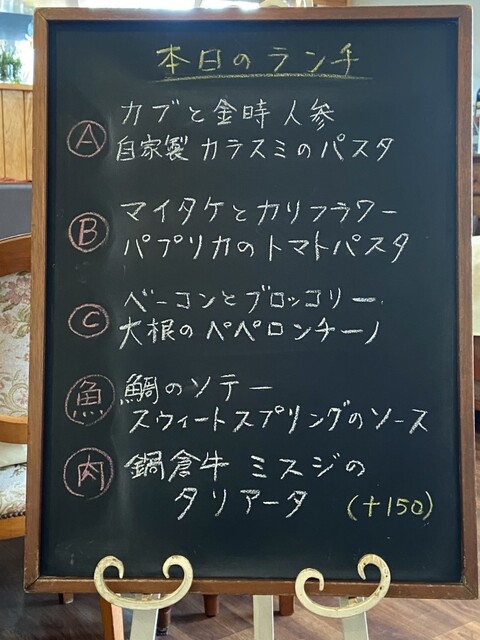 本日のランチ
カブと金時人参
Ⓐ 自家製カラスミのパスタ
マイタケとカリフラワー
Ⓑ パプリカのトマトパスタ
ベーコンとブロッコリー
Ⓒ 大根のペペロンチーノ
魚 鯛のソテー
スウィートスプリングのソース
肉 鍋倉牛 ミスジの
タリアータ (+150)